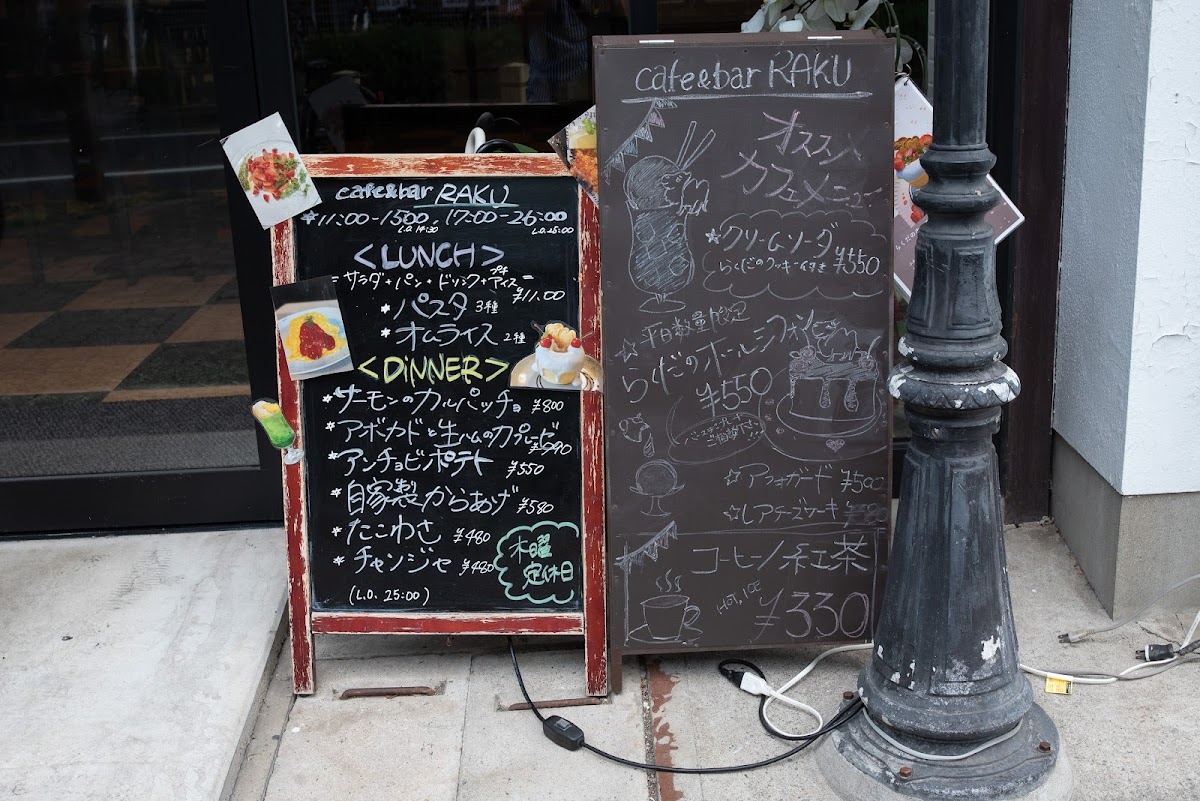 cafe&bar RAKU
*11:00-1500, 17:00-26:00
L.O. 14:30 L.O. 25:00
<LUNCH>
サラダ+パン+ドリンク+プチアイス
¥11.00
*パスタ 3種
*オムライス 2種
<DiNNER>
*サーモンのカルパッチョ ¥800
*アボカドと生ハムのカプレーゼ ¥990
*アンチョビポテト ¥550
*自家製からあげ ¥580
*たこわさ ¥480
*チャンジャ ¥480
(L.O. 25:00)
木曜
定休日
cafe&bar RAKU
オススメ
カフェメニュー
☆クリームソーダ
らくだのクッキー付き ¥550
☆平日数量限定
らくだのホールシフォン
¥550
☆アフォガード ¥500
☆レアチーズケーキ
コーヒー/紅茶
HOT, ICE
¥330